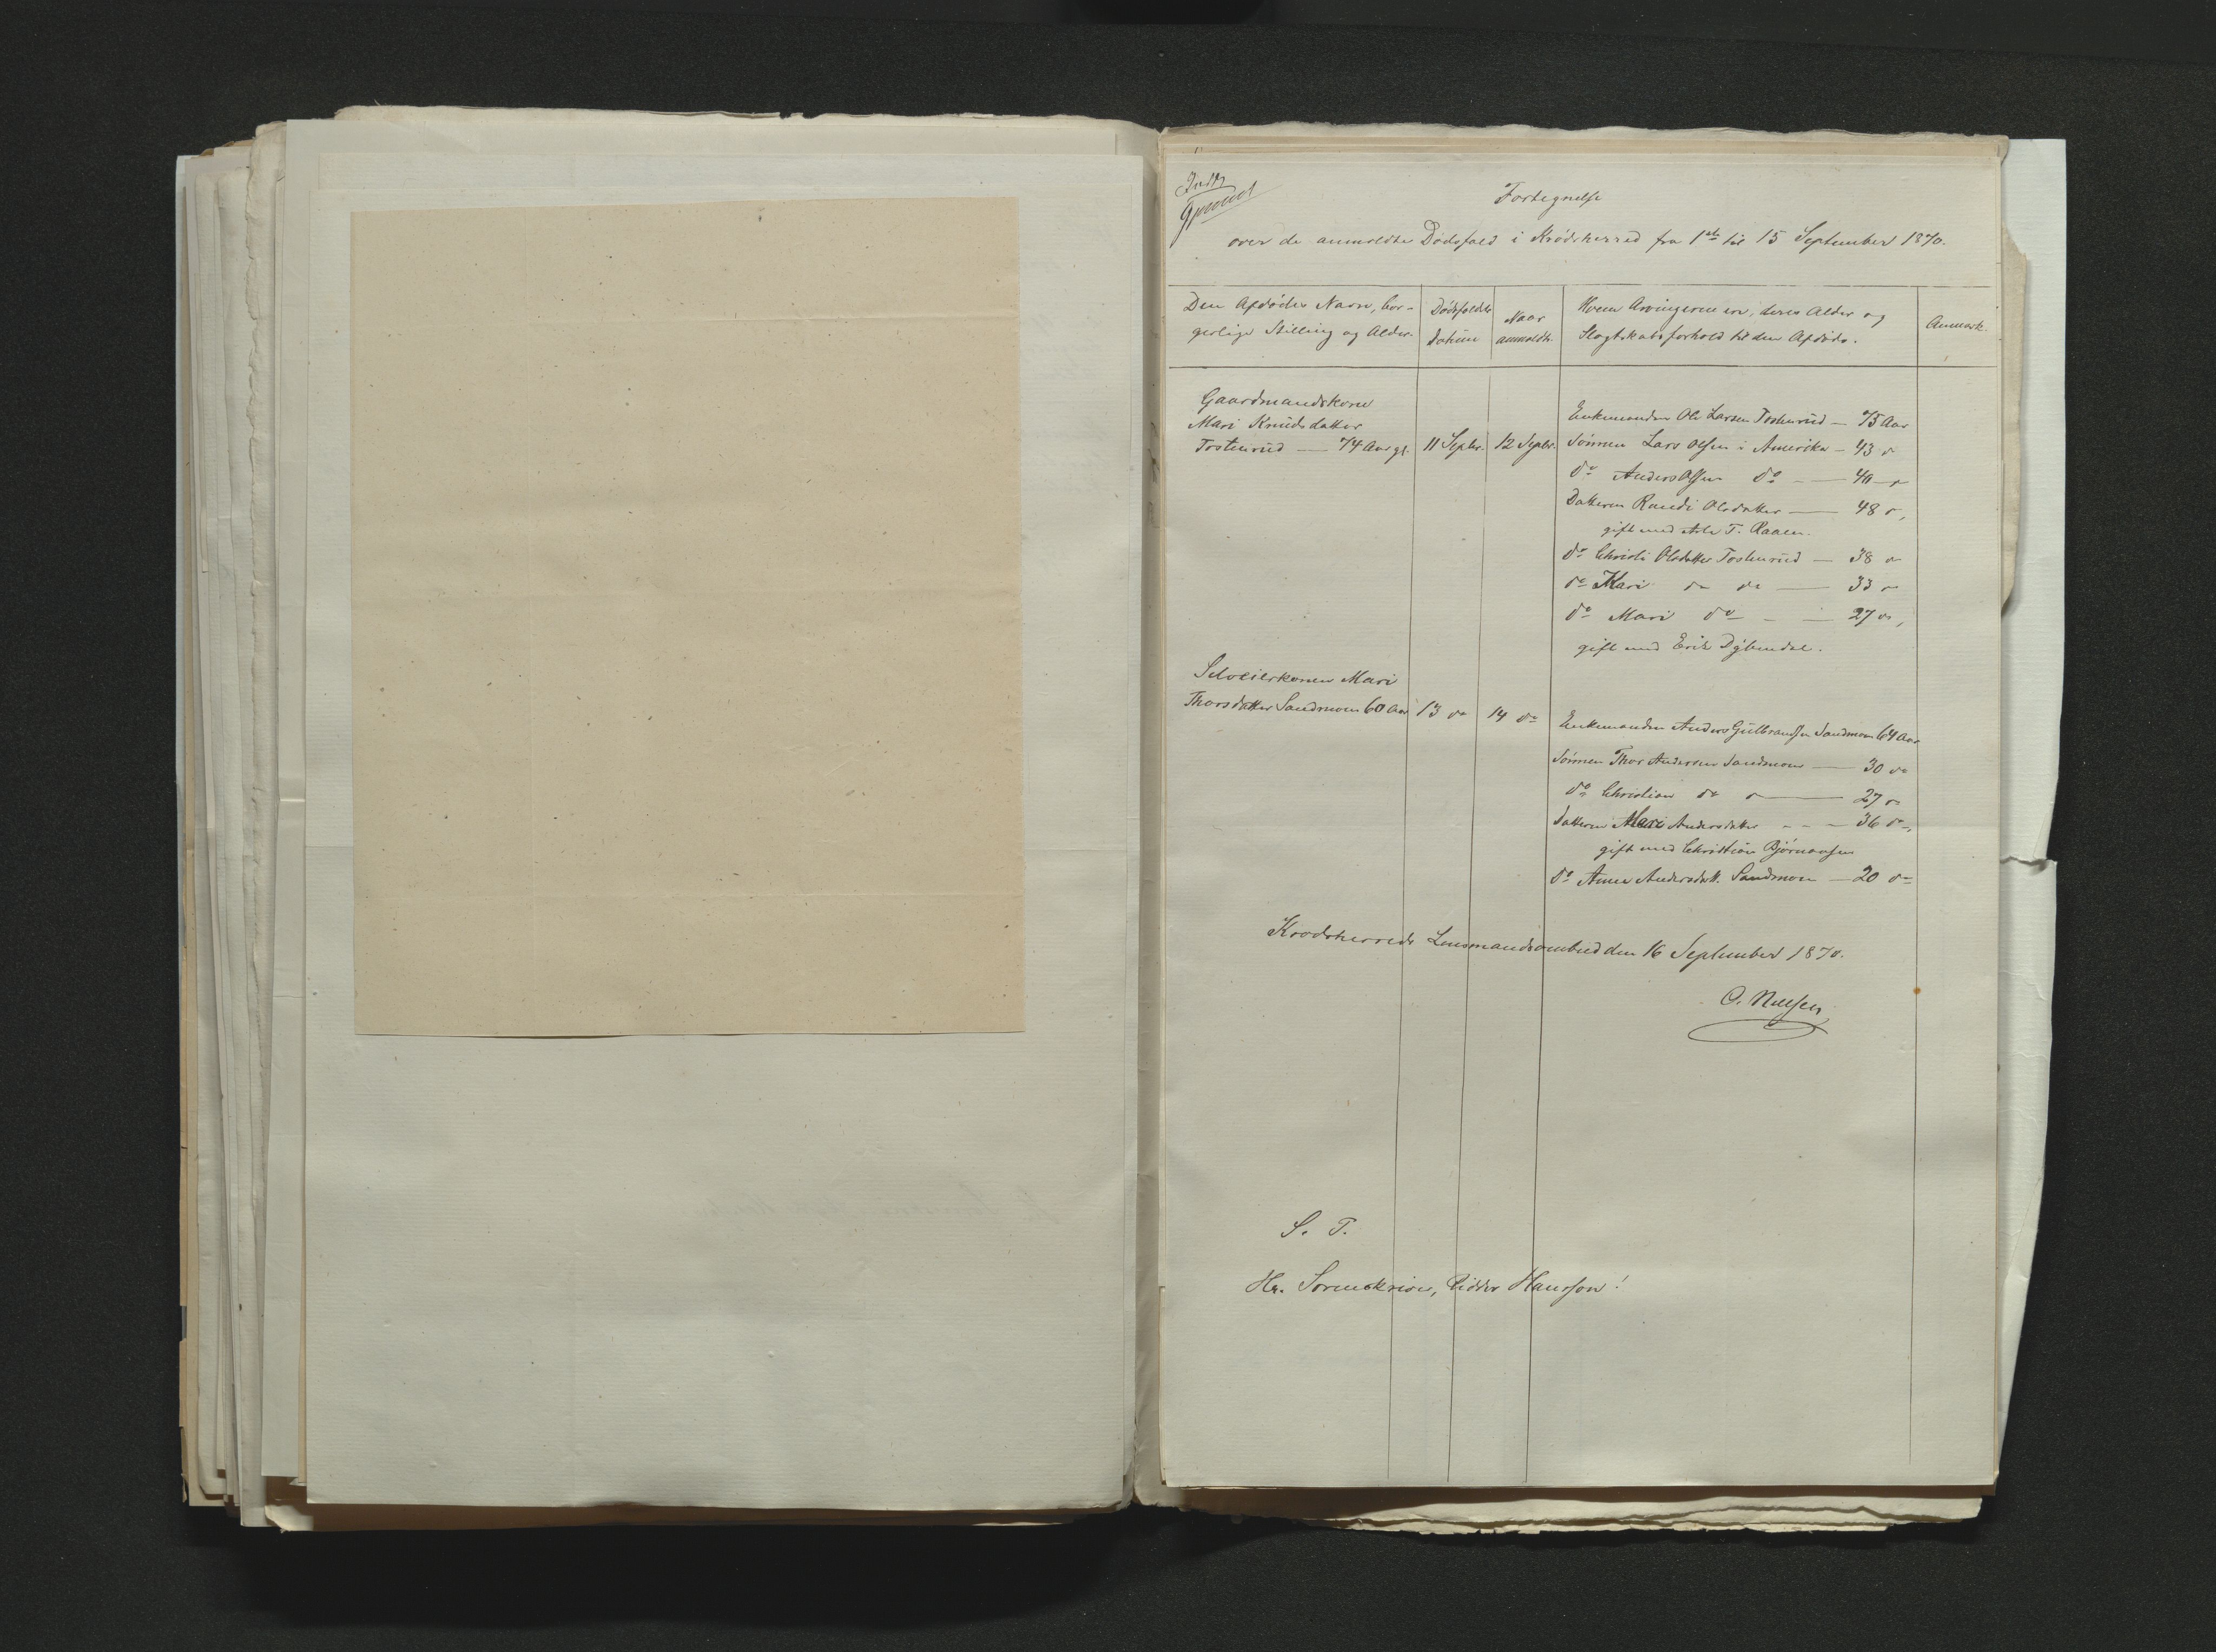 Fortegnelse
over de anmeldte Dødsfald i Krødsherred fra 1ste til 15 September 1870.
Den Afdødes Navn, bor-
gerlige Stilling og Alder.
Dødsfaldets
Datum
Naar
anmeldt.
Hvem Arvingerne ere, deres Alder og
Slægtskabsforhold til den Afdøde.
Anmærk.
Gaardmandskone
Mari Knudsdatter
Tostenrud — 74 Aar gl.
11 Septbr.
12 Septbr.
Enkemanden Ole Larsen Tostenrud — 75 Aar
Sønnen Lars Olsen i Amerika — 43 do
do Anders Olsen do — 40 do
Datteren Randi Olsdatter — 48 do,
gift med T. Raaen.
do Christi Olsdatter Tostenrud — 38 do
do Kari do do — 33 do
do Mari do — 27 do,
gift med Erik
Selveierkonen Mari
Thorsdatter Sandmoen 60 Aar
13 do
14 do
Enkemanden Anders Gulbrandsen Sandmoen 64 Aar
Sønnen Thor Andersen Sandmoen — 30 do
do Christian do do — 27 do
Datteren Andersdatter — 36 do,
gift med Christian Bjørnersen
do Anne Andersdatt. Sandmoen — 20 do
Krødsherreds Lensmandsombud den 16 September 1870.
O. Nilsen
S. T.
Hr. Sorenskriver, Ridder Hansson!